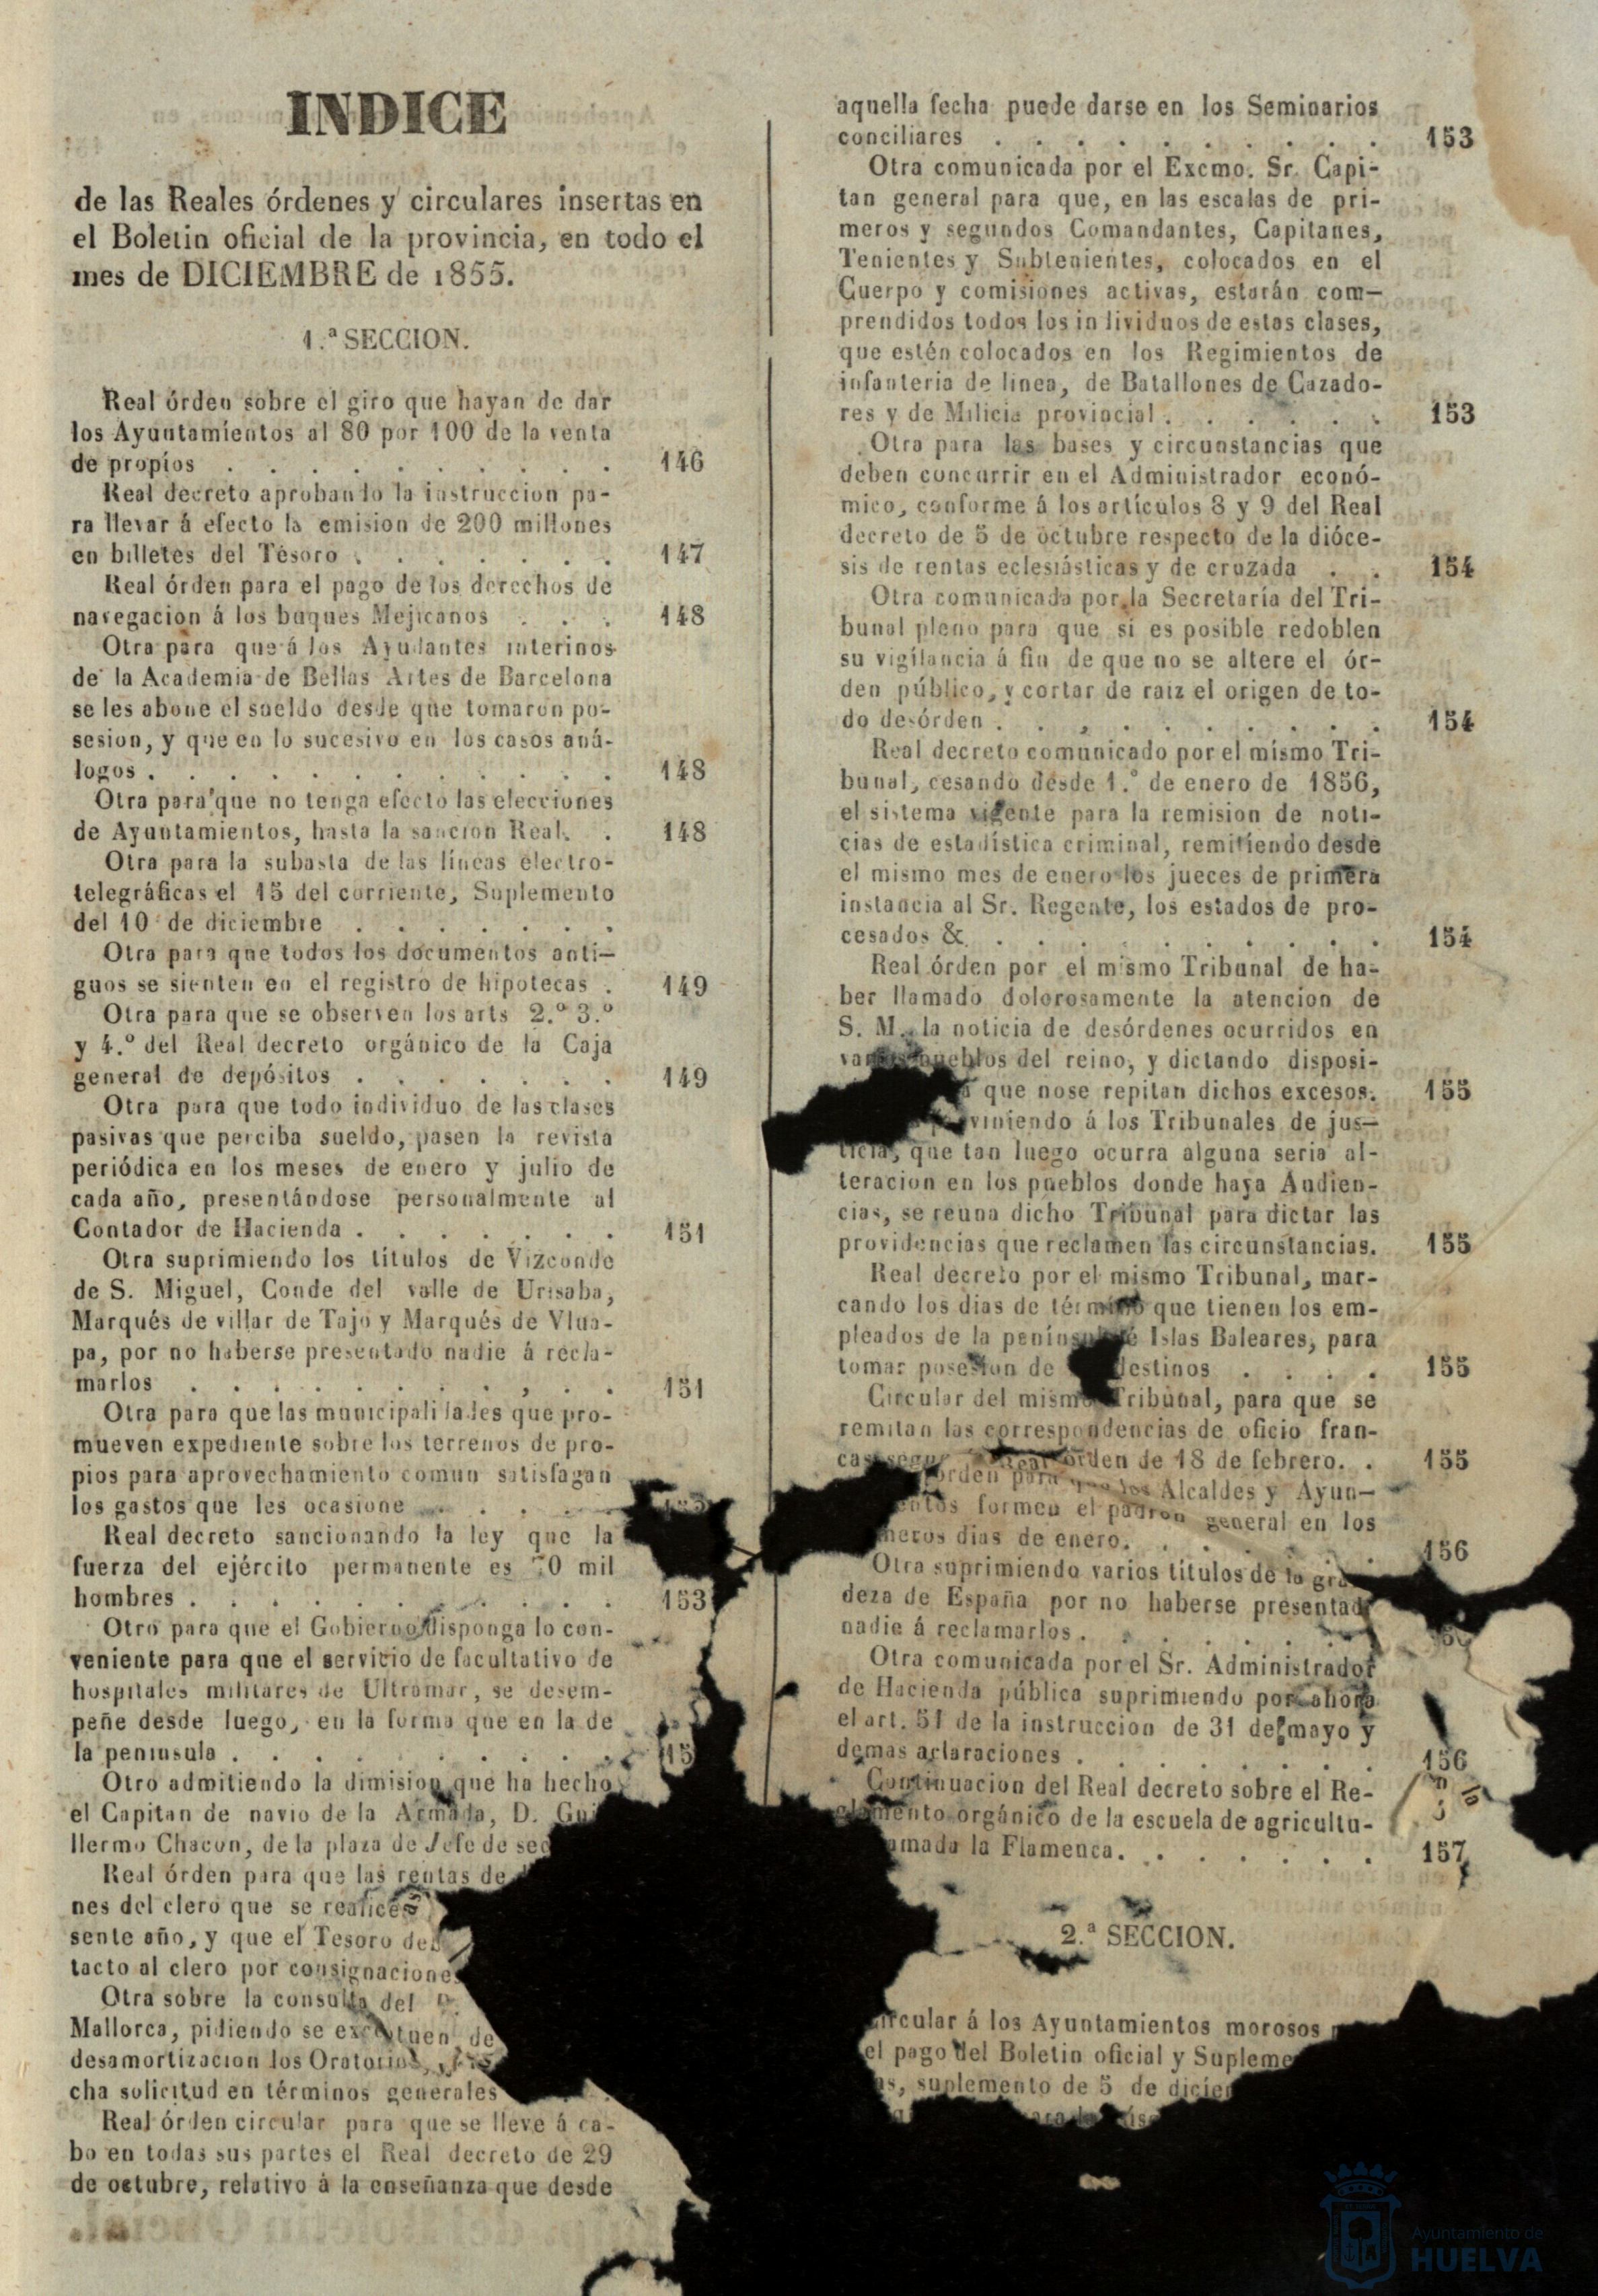 INDICE
de las Reales órdenes y circulares insertas en
el Boletin oficial de la provincia, en todo el
mes de DICIEMBRE de 1855.
1.ª SECCION.
Real órden sobre el giro que hayan de dar
los Ayuntamientos al 80 por 100 de la venta
de propios . . . . . . . . . . 146
Real decreto aprobando la instruccion pa-
ra llevar á efecto la emision de 200 millones
en billetes del Tesoro . . . . . . . 147
Real órden para el pago de los derechos de
navegacion á los buques Mejicanos . . . 148
Otra para que á los Ayudantes interinos
de la Academia de Bellas Artes de Barcelona
se les abone el sueldo desde que tomaron po-
sesion, y que en lo sucesivo en los casos aná-
logos . . . . . . . . . . . . 148
Otra para que no tenga efecto las elecciones
de Ayuntamientos, hasta la sancion Real. . 148
Otra para la subasta de las líneas electro-
telegráficas el 15 del corriente, Suplemento
del 10 de diciembre . . . . . . .
Otra para que todos los documentos anti-
guos se sienten en el registro de hipotecas . 149
Otra para que se observen los arts 2.º 3.º
y 4.º del Real decreto orgánico de la Caja
general de depósitos . . . . . . . 149
Otra para que todo individuo de las clases
pasivas que perciba sueldo, pasen la revista
periódica en los meses de enero y julio de
cada año, presentándose personalmente al
Contador de Hacienda . . . . . . . 151
Otra suprimiendo los títulos de Vizconde
de S. Miguel, Conde del valle de Urisaba,
Marqués de villar de Tajo y Marqués de Vlua-
pa, por no haberse presentado nadie á recla-
marlos . . . . . . . . . . . 151
Otra para que las municipalidades que pro-
mueven expediente sobre los terrenos de pro-
pios para aprovechamiento comun satisfagan
los gastos que les ocasione . . . . .
Real decreto sancionando la ley que la
fuerza del ejército permanente es 70 mil
hombres . . . . . . . . . . . 153
Otro para que el Gobierno disponga lo con-
veniente para que el servicio de facultativo de
hospitales militares de Ultramar, se desem-
peñe desde luego, en la forma que en la de
la peninsula . . . . . . . . . . 15
Otro admitiendo la dimision que ha hecho
el Capitan de navio de la Armada, D. Gui
llermo Chacon, de la plaza de Jefe de sec
Real órden para que las rentas de
nes del clero que se realicen
sente año, y que el Tesoro de
tacto al clero por consignaciones
Otra sobre la consulta del
Mallorca, pidiendo se exceptuen de
desamortizacion los Oratorios,
cha solicitud en términos generales
Real órden circular para que se lleve á ca-
bo en todas sus partes el Real decreto de 29
de octubre, relativo á la enseñanza que desde
aquella fecha puede darse en los Seminarios
conciliares . . . . . . . . . . 153
Otra comunicada por el Excmo. Sr. Capi-
tan general para que, en las escalas de pri-
meros y segundos Comandantes, Capitanes,
Tenientes y Subtenientes, colocados en el
Cuerpo y comisiones activas, estarán com-
prendidos todos los individuos de estas clases,
que estén colocados en los Regimientos de
infanteria de linea, de Batallones de Cazado-
res y de Milicia provincial . . . . . . 153
Otra para las bases y circunstancias que
deben concurrir en el Administrador econó-
mico, conforme á los artículos 8 y 9 del Real
decreto de 5 de octubre respecto de la dióce-
sis de rentas eclesiásticas y de cruzada . . 154
Otra comunicada por la Secretaría del Tri-
bunal pleno para que si es posible redoblen
su vigilancia á fin de que no se altere el ór-
den público, y cortar de raiz el origen de to-
do desórden . . . . . . . . . . 154
Real decreto comunicado por el mismo Tri-
bunal, cesando desde 1.º de enero de 1856,
el sistema vigente para la remision de noti-
cias de estadística criminal, remitiendo desde
el mismo mes de enero los jueces de primera
instancia al Sr. Regente, los estados de pro-
cesados &. . . . . . . . . . . 154
Real órden por el mismo Tribunal de ha-
ber llamado dolorosamente la atencion de
S. M. la noticia de desórdenes ocurridos en
varios pueblos del reino, y dictando disposi-
que nose repitan dichos excesos. 155
viniendo á los Tribunales de jus-
ticia, que tan luego ocurra alguna seria al-
teracion en los pueblos donde haya Audien-
cias, se reuna dicho Tribunal para dictar las
providencias que reclamen las circunstancias. 155
Real decreto por el mismo Tribunal, mar-
cando los dias de término que tienen los em-
pleados de la península é Islas Baleares, para
tomar posesion de destinos . . . . 155
Circular del mismo Tribunal, para que se
remitan las correspondencias de oficio fran-
cas segun Real órden de 18 de febrero. . 155
órden para que los Alcaldes y Ayun-
entos formen el padron general en los
meros dias de enero. . . . . . . 156
Otra suprimiendo varios titulos de la gran
deza de España por no haberse presentado
nadie á reclamarlos . . . . . . .
Otra comunicada por el Sr. Administrador
de Hacienda pública suprimiendo por ahora
el art. 51 de la instruccion de 31 de mayo y
demas aclaraciones . . . . . . . . 156
Continuacion del Real decreto sobre el Re-
glamento orgánico de la escuela de agricultu-
amada la Flamenca. . . . . . . 157
2.ª SECCION.
Circular á los Ayuntamientos morosos
el pago del Boletin oficial y Supleme
as, suplemento de 5 de dicie
Ayuntamiento de
HUELVA